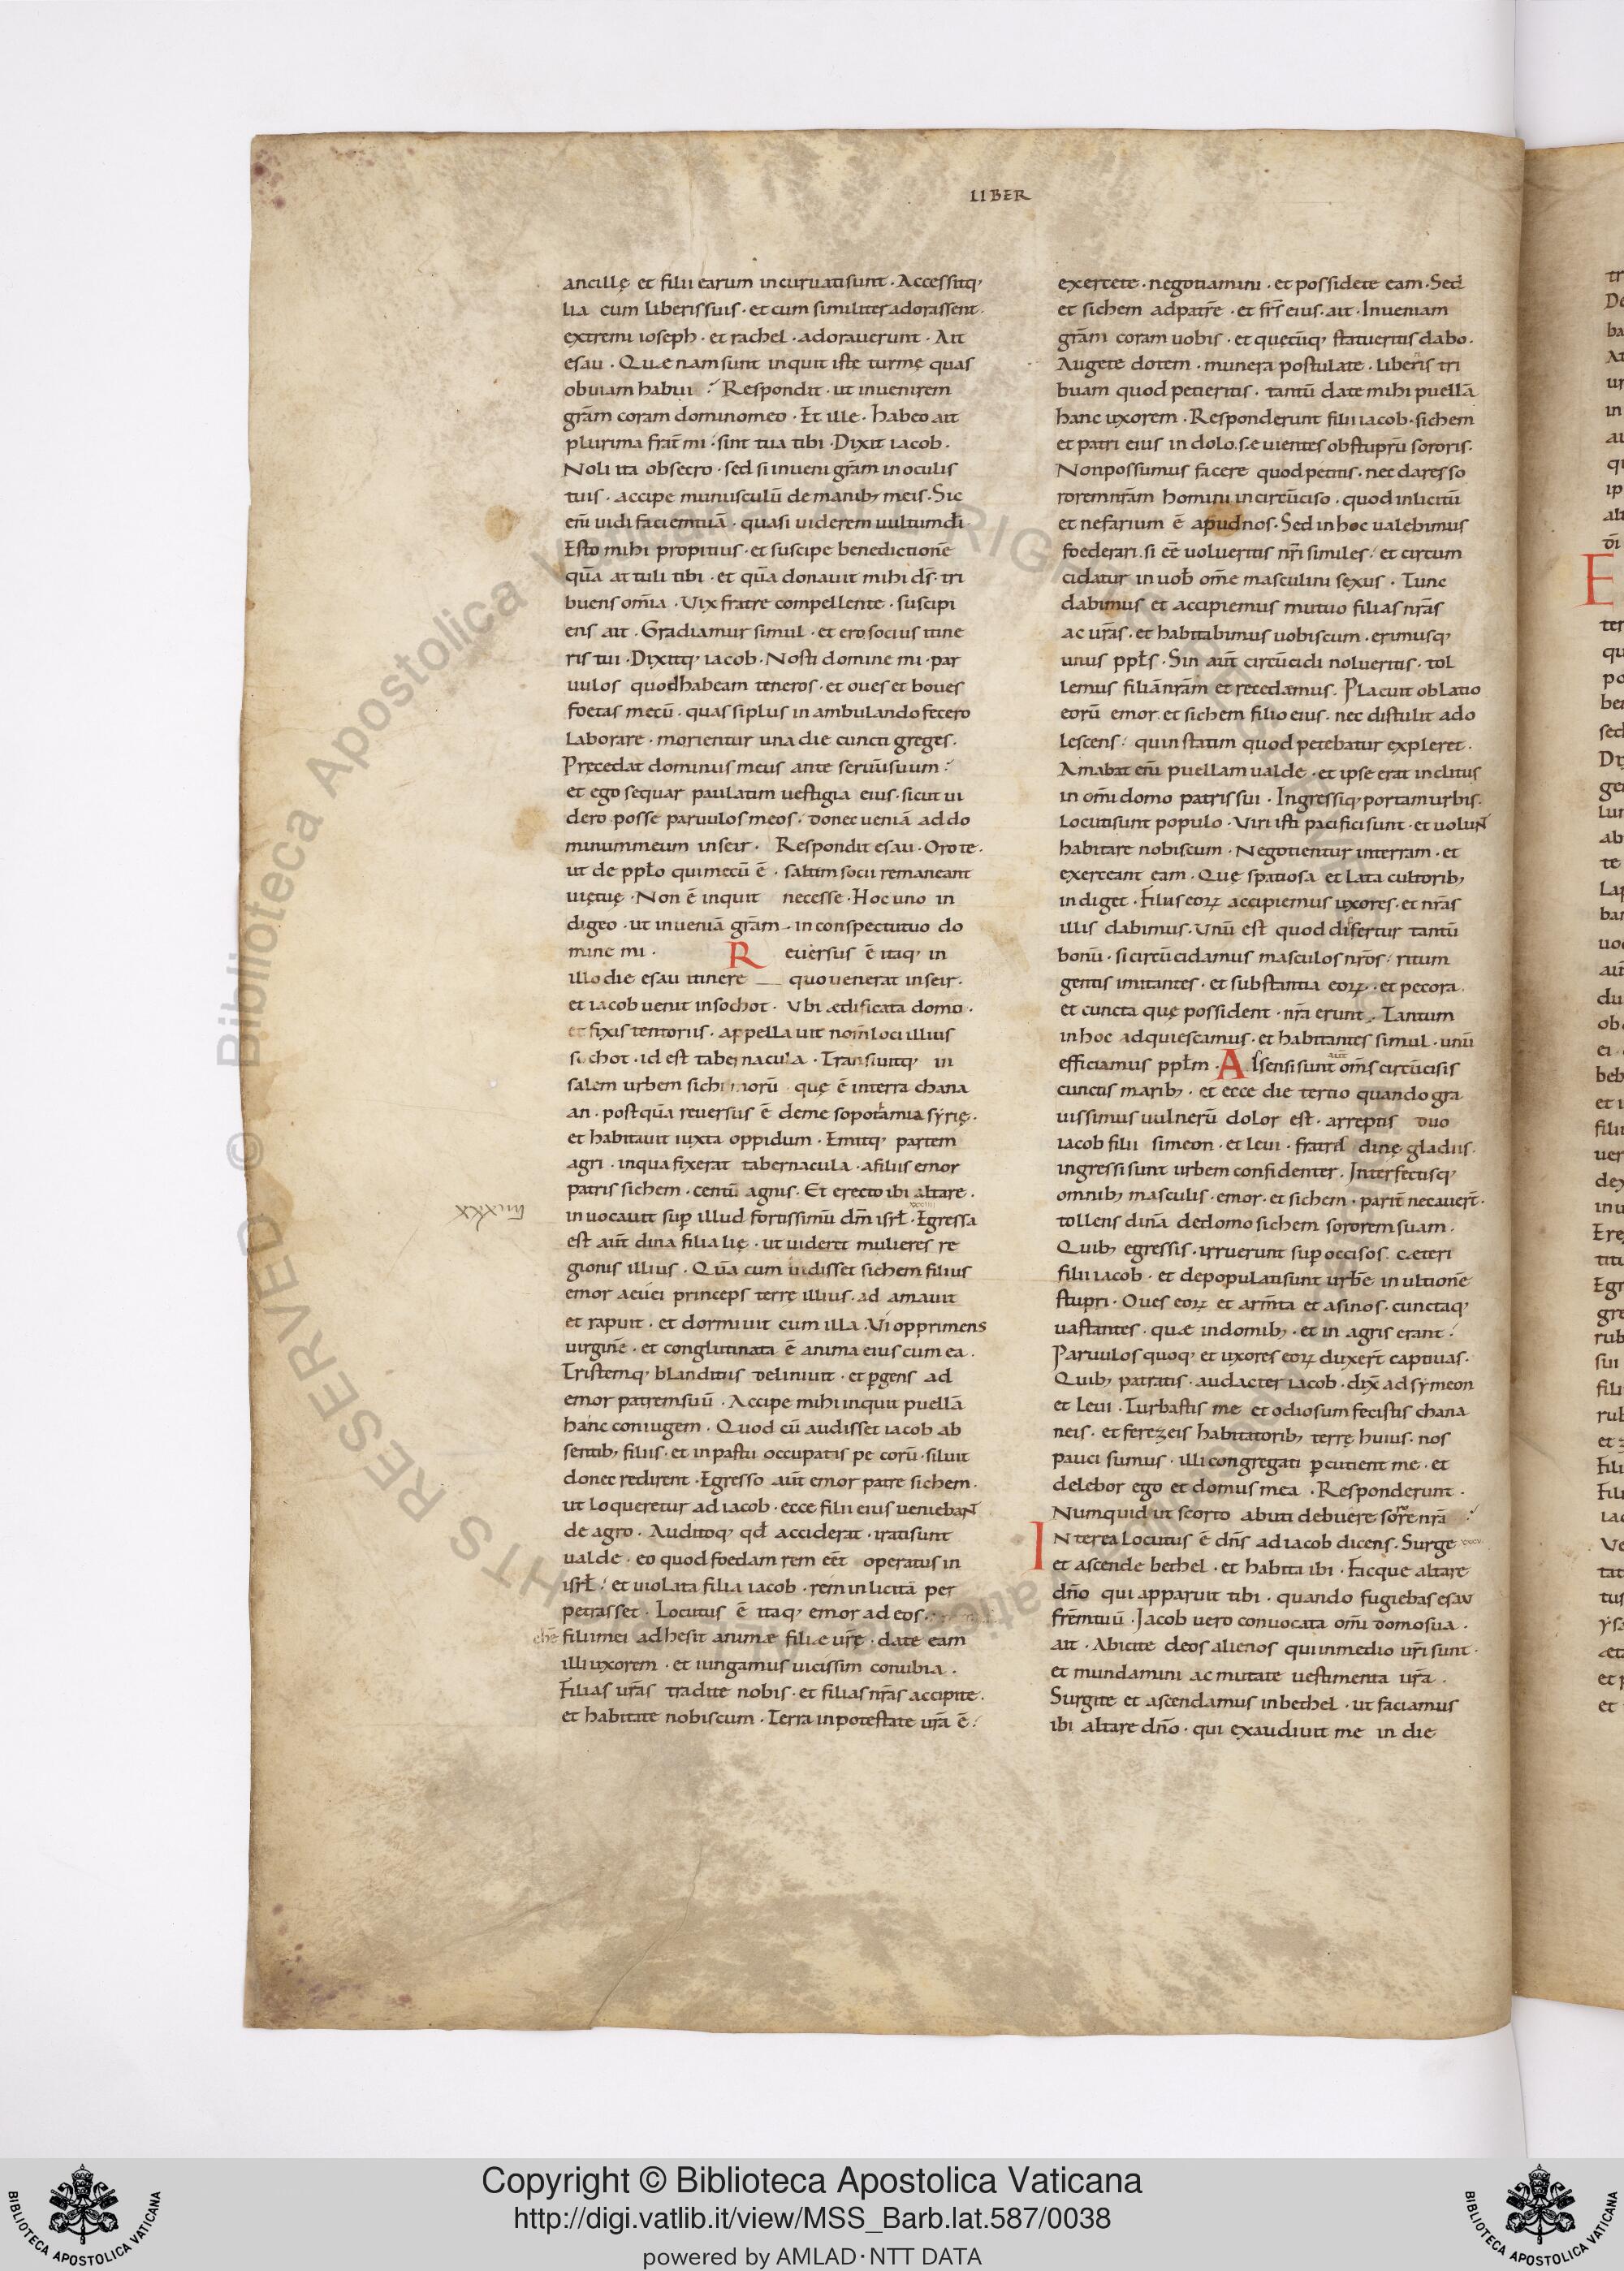 LIBER
ancillę et filii earum incuruati sunt · Accessitq;
lia cum liberis suis · et cum similiter adorassent ·
extremi ioseph · et rachel · adorauerunt · Ait
esau · Quęnam sunt inquit istę turmę quas
obuiam habui ? Respondit · ut inuenirem
gr̄am coram domino meo · Et ille · habeo ait
plurima frat̄ mi · sint tua tibi · Dixit iacob ·
Noli ita obsecro · sed si inueni gr̄am in oculis
tuis · accipe munusculū de manib; meis · Sic
eni̅ uidi faciem tuā · quasi uiderem uultum di̅
Esto mihi propitius · et suscipe benedictionē
quā attuli tibi · et quā donauit mihi ds̄ · tri
buens om̄ia · Vix fratre compellente · suscipi
ens ait · Gradiamur simul · et ero socius itine
ris tui · Dixitq; iacob · Nosti domine mi · par
uulos quod habeam teneros · et oues et boues
foetas mecū · quas si plus in ambulando fecero
laborare · morientur una die cuncti greges ·
Pręcedat dominus meus ante seruū suum :
et ego sequar paulatim uestigia eius · sicut ui
dero posse paruulos meos · donec ueniā ad do
minum meum in seir · Respondit esau · Oro te ·
ut de ppl̄o qui mecū ē · saltim socii remaneant
uię tuę · Non ē inquit necesse · Hoc uno in
digeo · ut inueniā gr̄am · in conspectu tuo do
mine mi · Reuersus ē itaq; in
illo die esau itinere quo uenerat in seir ·
et iacob uenit in sochot · Vbi ædificata domo ·
et fixis tentoriis · appellauit nom̄ loci illius
sochot · id est tabernacula · Transiuitq; in
salem urbem sichimorū · quę ē in terra chana
an · postquā reuersus ē de mesopotamia syrię ·
et habitauit iuxta oppidum · Emitq; partem
agri · in qua fixerat tabernacula · a filiis emor
patris sichem · centū agnis · Et erecto ibi altare ·
inuocauit sup̄ illud fortissimū dm̄ isrl̄ · Egressa
est aut̄ dina filia lię · ut uideret mulieres re
gionis illius · Quā cum uidisset sichem filius
emor aeuei princeps terrę illius · adamauit
et rapuit · et dormiuit cum illa · Vi opprimens
uirginē · et conglutinata ē anima eius cum ea ·
Tristemq; blanditiis deliniuit · et p̄gens ad
emor patrem suū · Accipe mihi inquit puellā
hanc coniugem · Quod cū audisset iacob ab
sentib; filiis · et in pastu occupatis pecorū · siluit
donec redirent · Egresso aut̄ emor patre sichem ·
ut loqueretur ad iacob · ecce filii eius ueniebaNT
de agro · Auditoq; qd̄ acciderat · irati sunt
ualde · eo quod foedam rem eēt operatus in
isrl̄ : et uiolata filia iacob · rem inlicitā per
petrasset · Locutus ē itaq; emor ad eos ·
filii mei adhesit animæ filiæ urę̄ · date eam
illi uxorem · et iungamus uicissim conubia ·
Filias ur̄as tradite nobis · et filias nr̄as accipite ·
et habitate nobiscum · Terra in potestate ur̄a ē :
exercete · negotiamini · et possidete eam · Sed
et sichem ad patr̄e · et fr̄s eius · ait · Inueniam
gr̄am coram uobis · et quęcūq; statueritis dabo ·
Augete dotem · munera postulate · libenis tri
buam quod petieritis · tantū date mihi puellā
hanc uxorem · Responderunt filii iacob · sichem
et patri eius in dolo · seuientes ob stuprū sororis ·
Non possumus facere quod petitis · nec dares so
rorem nr̄am homini incircūciso · quod inlicitū
et nefarium ē apud nos · Sed in hoc ualebimus
foederari · si eē uolueritis nr̄i similes : et circum
cidatur in uob̄ om̄e masculini sexus · Tunc
dabimus et accipiemus mutuo filias nr̄as
ac ur̄as · et habitabimus uobiscum · erimusq;
unus ppl̄s · Sin aut̄ circūcidi nolueritis · tol
lemus filiā nr̄am et recedamus · Placuit oblatio
eorū emor · et sichem filio eius · nec distulit ado
lescens : quin statim quod petebatur expleret ·
Amabat eni̅ puellam ualde · et ipse erat inclitus
in om̄i domo patris sui · Ingressiq; portam urbis ·
locuti sunt populo · Viri isti pacifici sunt · et uoluNT
habitare nobiscum · Negotientur in terram · et
exerceant eam · Quę spatiosa et lata cultorib;
indiget · Filias eorꝝ accipiemus uxores · et nr̄as
illis dabimus · Vnū est quod differtur tantū
bonū · si circūcidamus masculos nr̄os : ritum
gentis imitantes · et substantia eorꝝ · et pecora ·
et cuncta quę possident · nr̄a erunt · Tantum
in hoc adquiescamus · et habitantes simul · unū
efficiamus ppl̄m · Alsensi sunt om̄s circūcisis
cunctis marib; · et ecce die tertio quando gra
uissimus uulnerū dolor est · arreptis duo
iacob filii simeon · et leui · fratres dinę gladiis ·
ingressi sunt urbem confidenter · Interfectisq;
omnib; masculis · emor · et sichem · parit̄ necauer̄t ·
tollens dinā de domo sichem sororem suam ·
Quib; egressis · irruerunt sup̄ occisos · cæteri
filii iacob · et depopulati sunt urbē in ultionē
stupri · Oues eorꝝ et arm̄ta et asinos · cunctaq;
uastantes · quæ in domib; · et in agris erant :
Paruulos quoq; et uxores eorꝝ duxer̄t captiuas ·
Quib; patratis · audacter iacob · dix̄ ad symeon
et leui · Turbastis me et odiosum fecistis chana
neis · et ferezeis habitatorib; terrę huius · nos
pauci sumus · illi congregati p̄cutient me · et
delebor ego et domus mea · Responderunt ·
Numquid ut scorto abuti debuere sorore nr̄a ?
INterea locutus ē dn̄s ad iacob dicens · Surge
et ascende bethel · et habita ibi · Facque altare
dn̄o qui apparuit tibi · quando fugiebas esau
fr̄em tuū · Iacob uero conuocata om̄i domo sua ·
ait · Abicite deos alienos qui in medio ur̄i sunt ·
et mundamini ac mutate uestimenta ur̄a ·
Surgite et ascendamus in bethel · ut faciamus
ibi altare dn̄o · qui exaudiuit me in die
Copyright © Biblioteca Apostolica Vaticana
http://digi.vatlib.it/view/MSS_Barb.lat.587/0038
powered by AMLAD·NTT DATA
BIBLIOTECA APOSTOLICA VATICANA
BIBLIOTECA APOSTOLICA VATICANA